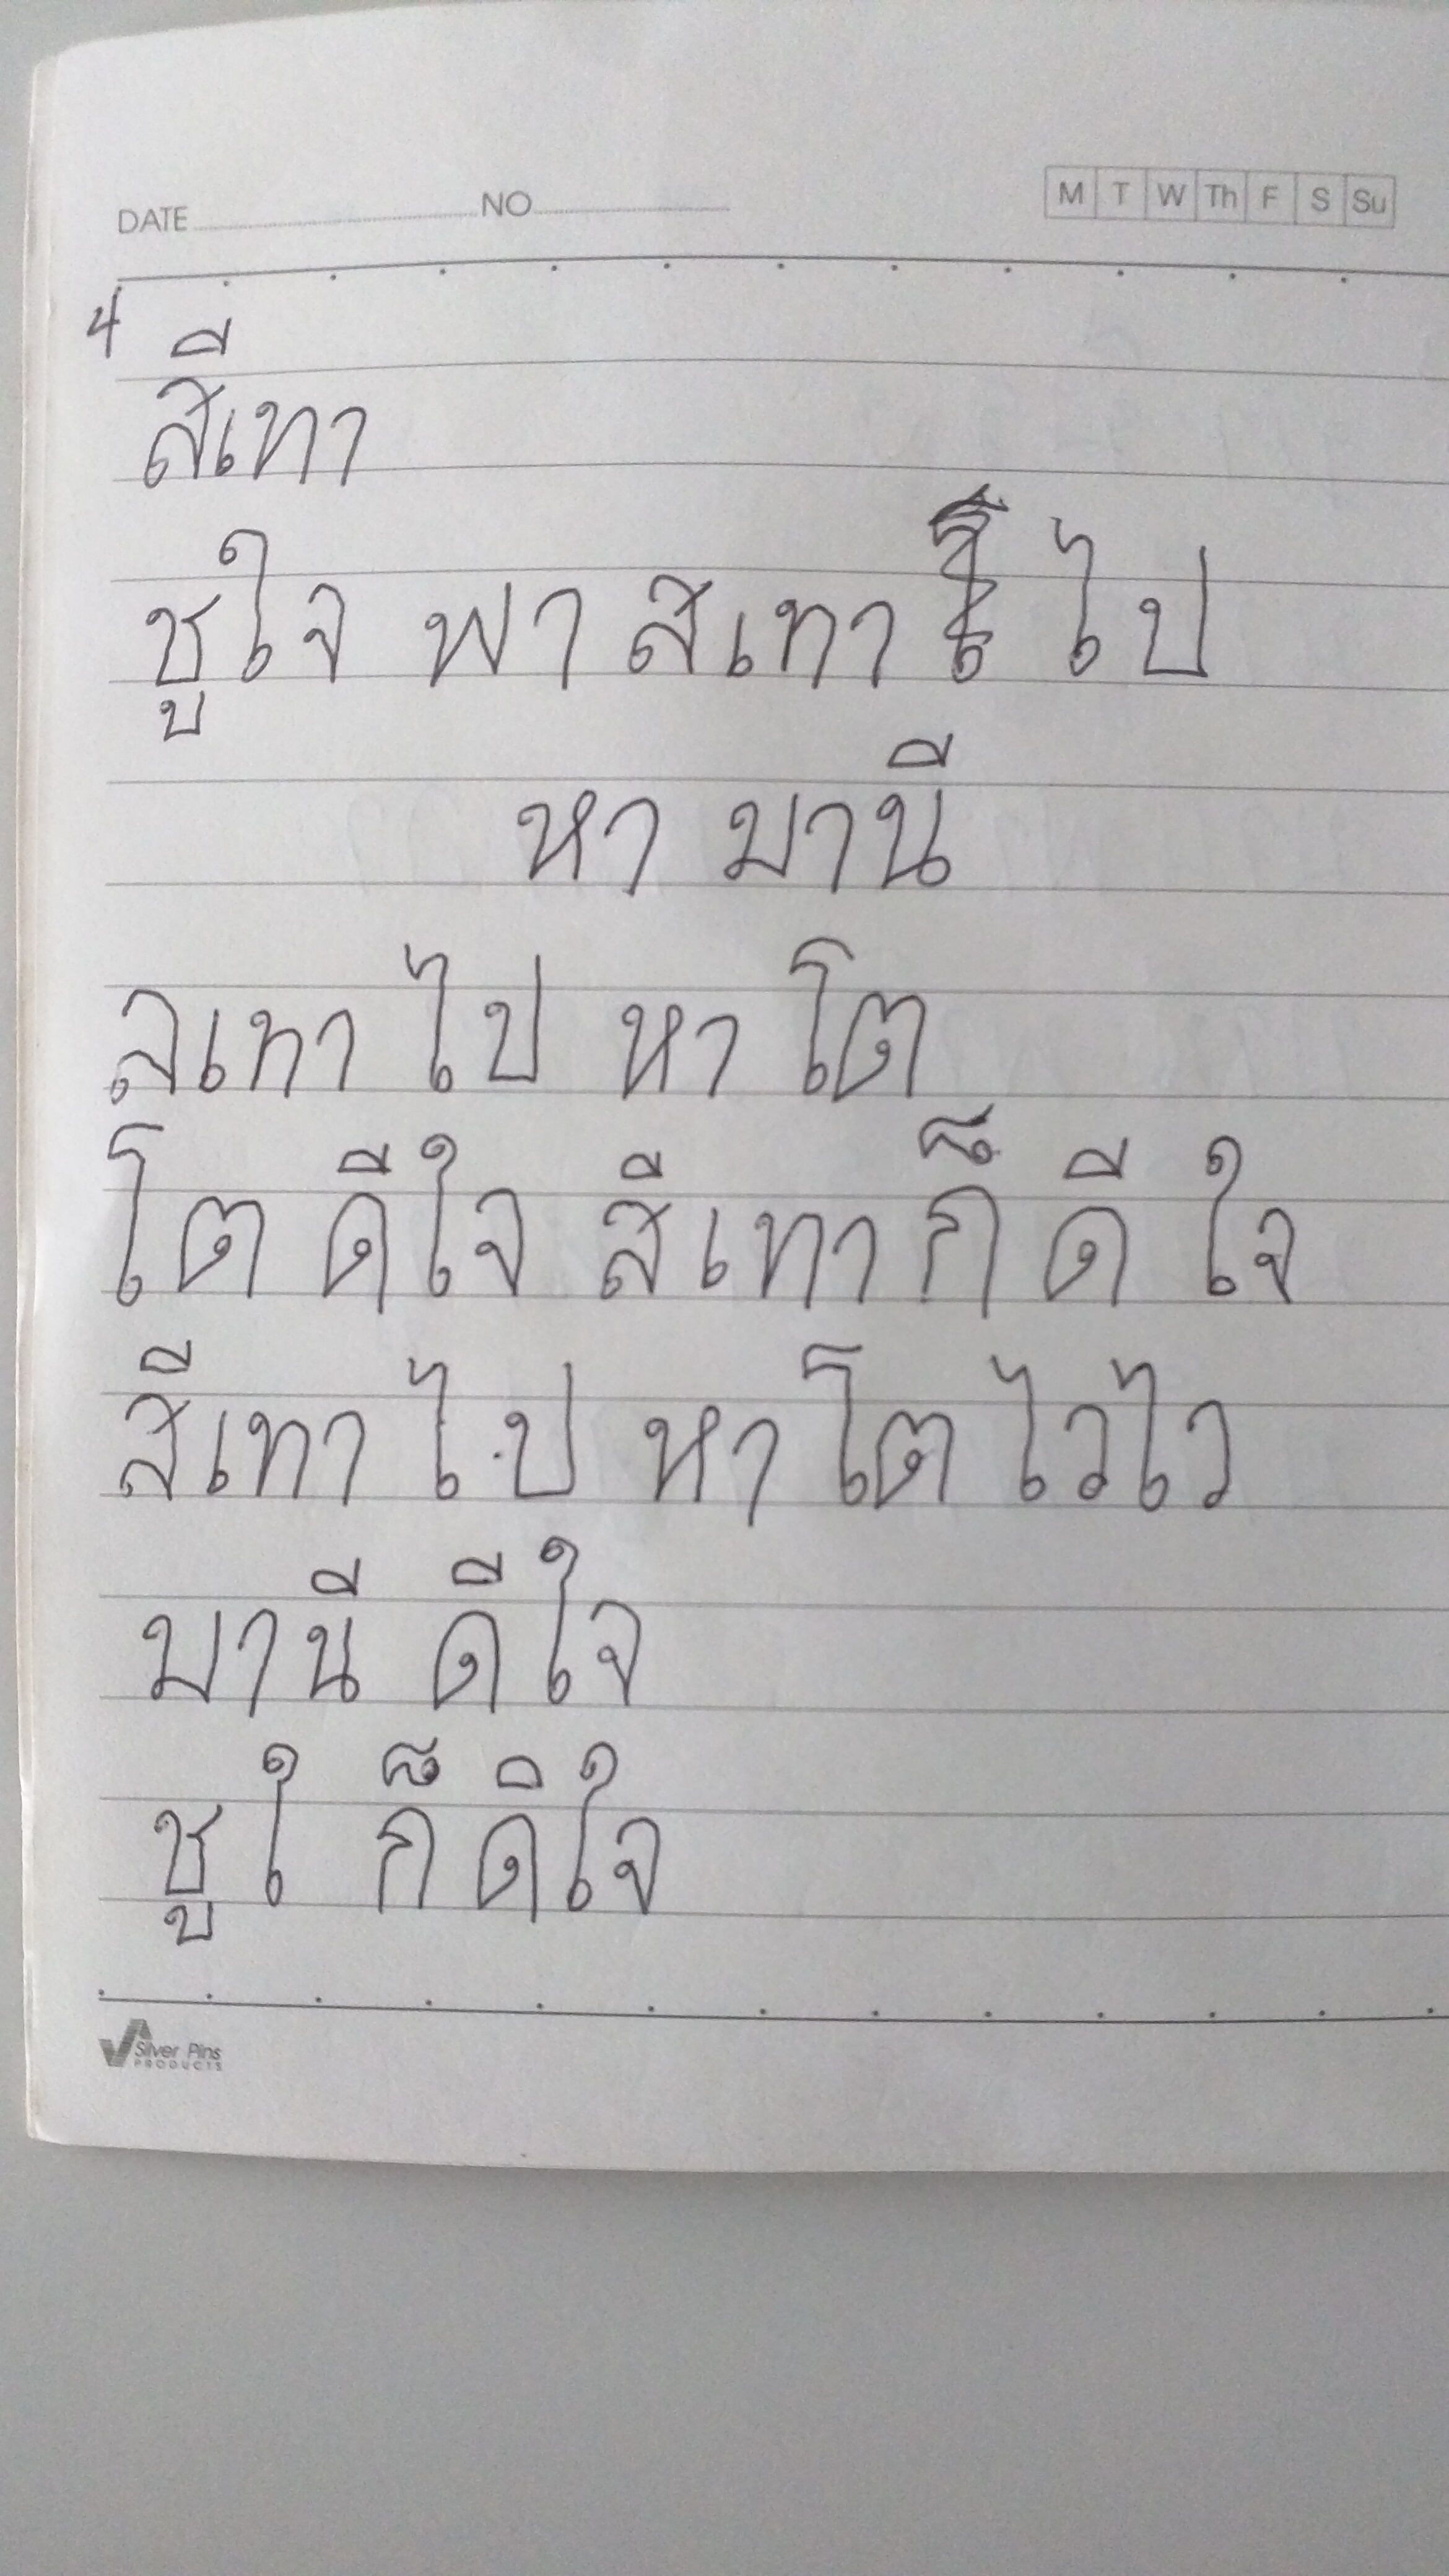 DATE NO M T W Th F S Su
4
สีเทา
ชูใจ พา สเทา ไป
หา มานี
ลเทา ไป หา โต
โต ดีใจ สีเทา ก็ ดี ใจ
สีเทา ไป หา โต ไวไว
มานี ดีใจ
ชูใ ก็ ดิใจ
Silver Pins
PRODUCTS